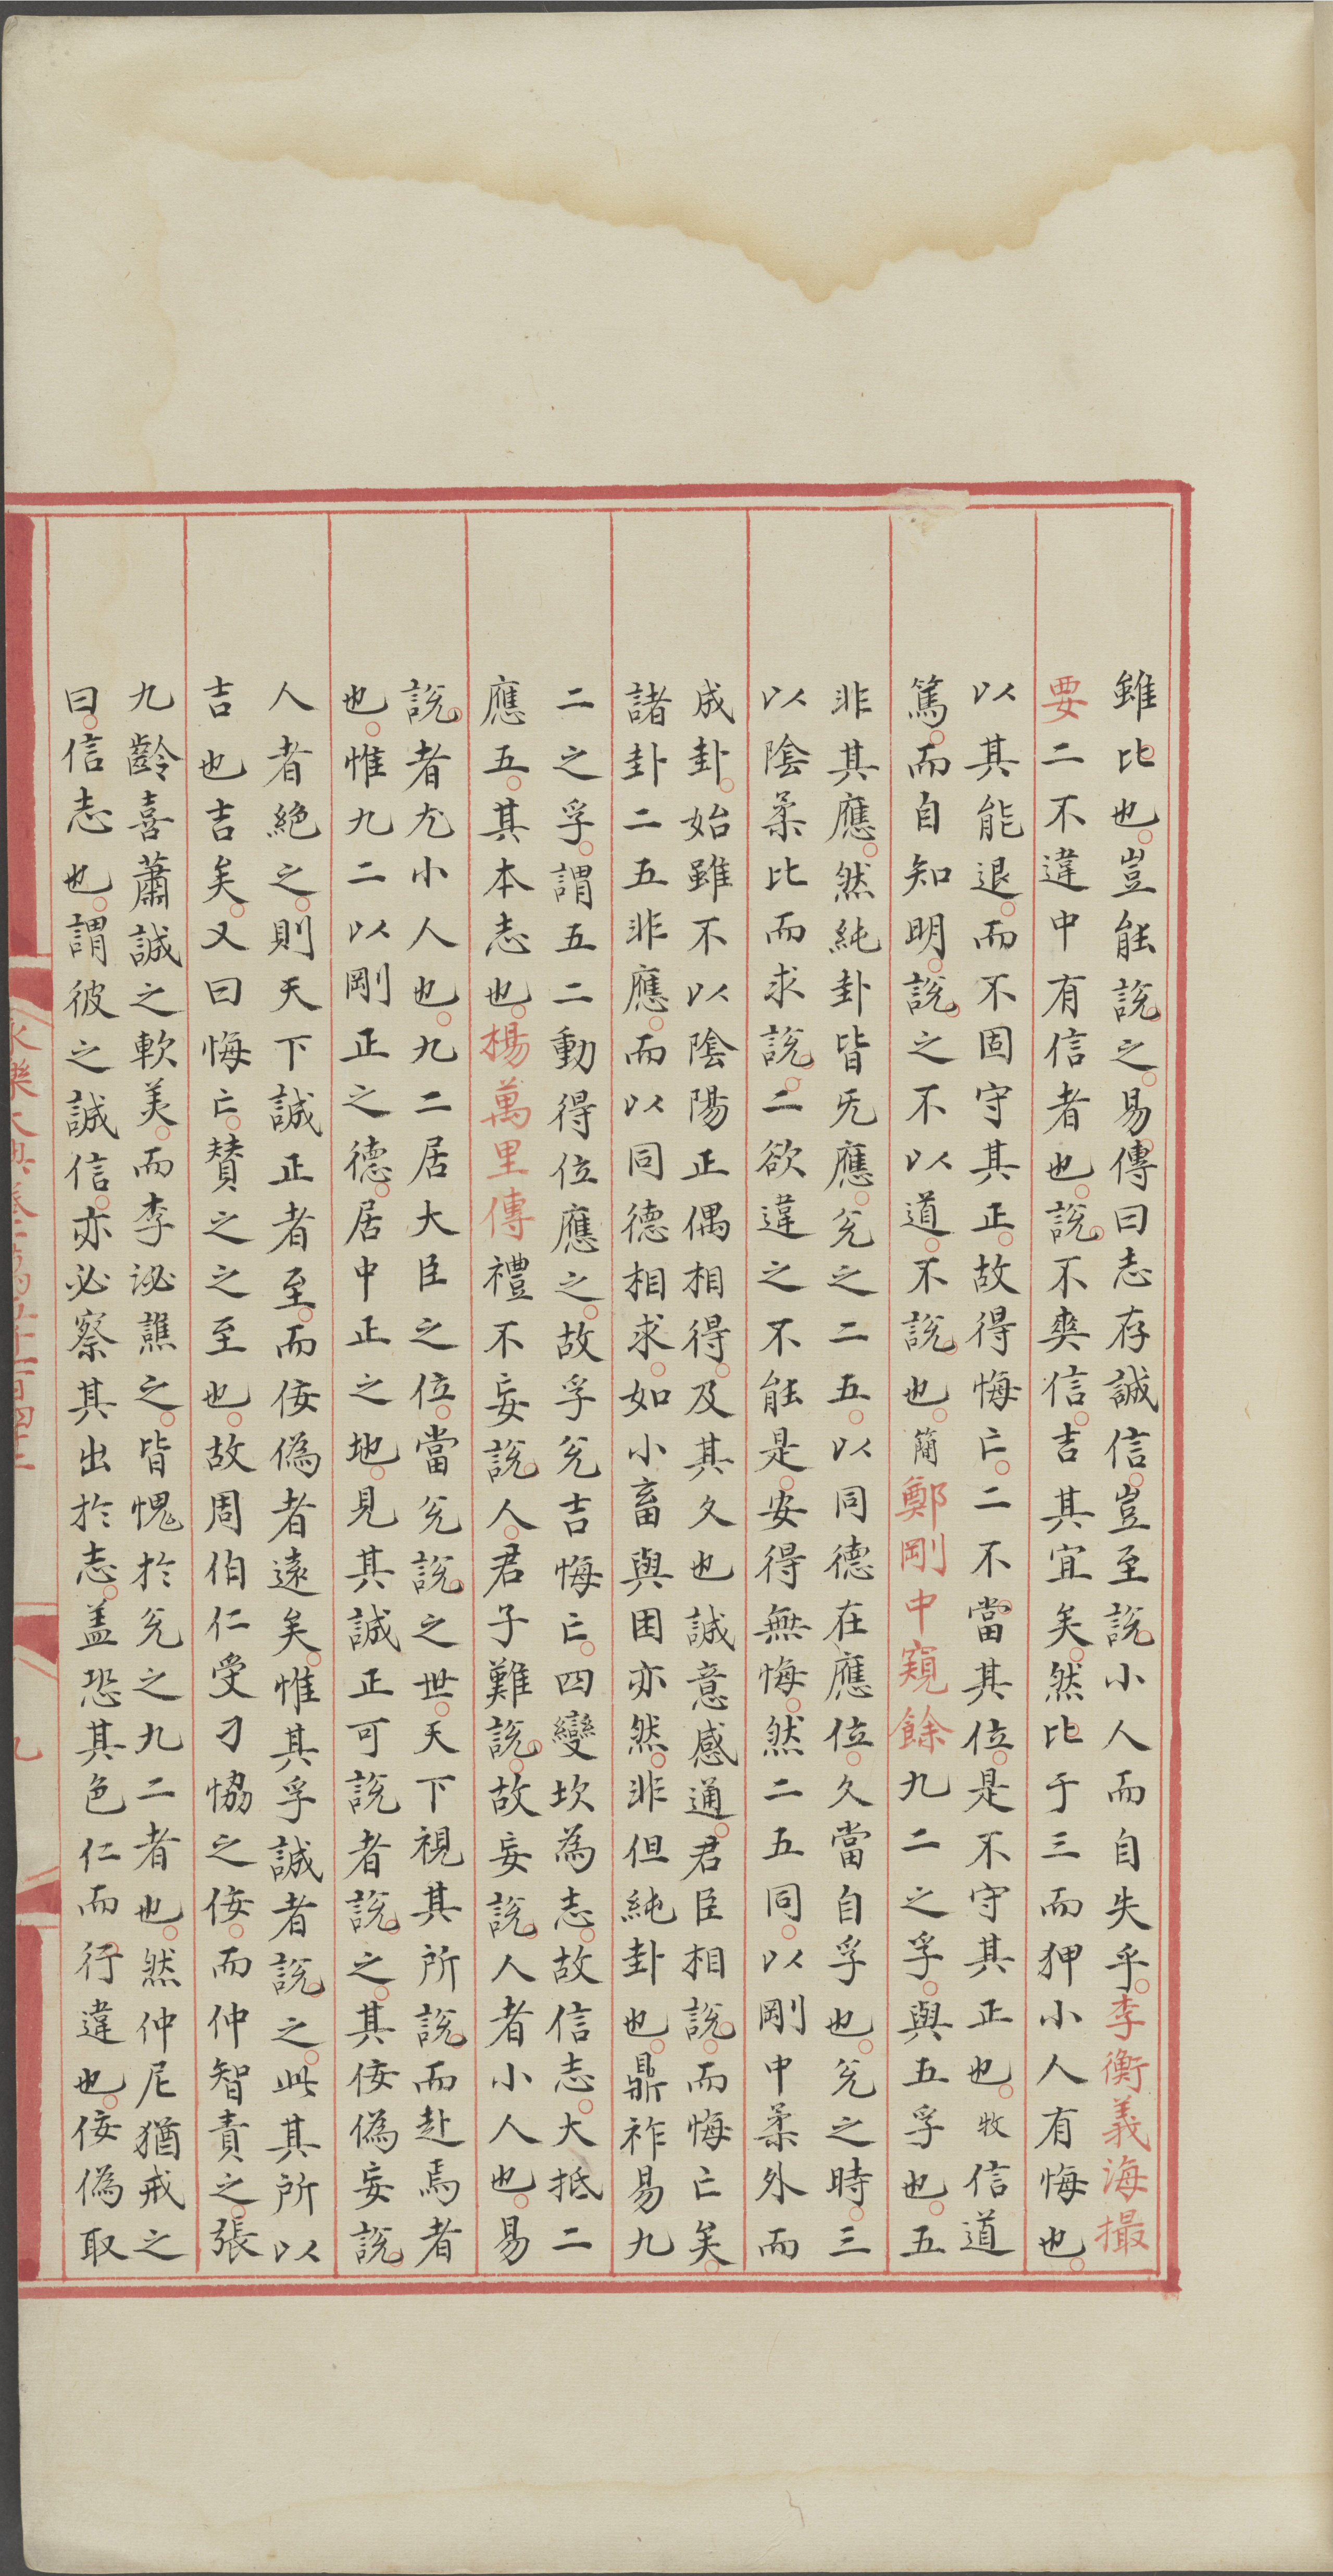 雖比也豈能說之易傳曰志存誠信豈至說小人而自失乎李衡義海撮
要二不違中有信者也說不爽信吉其宜矣然比于三而狎小人有悔也
以其能退而不固守其正故得悔亡二不當其位是不守其正也牧信道
篤而自知明說之不以道不說也簡鄭剛中窺餘九二之孚與五孚也五
非其應然純卦皆无應兌之二五以同德在應位久當自孚也兌之時三
以陰柔比而求說二欲違之不能是安得無悔然二五同以剛中柔外而
成卦始雖不以陰陽正偶相得及其久也誠意感通君臣相說而悔亡矣
諸卦二五非應而以同德相求如小畜與困亦然非但純卦也鼎祚易九
二之孚謂五二動得位應之故孚兌吉悔亡四變坎為志故信志大抵二
應五其本志也楊萬里傳禮不妄說人君子難說故妄說人者小人也易
說者尤小人也九二居大臣之位當兌說之世天下視其所說而赴焉者
也惟九二以剛正之德居中正之地見其誠正可說者說之其佞偽妄說
人者絕之則天下誠正者至而佞偽者遠矣惟其孚誠者說之此其所以
吉也吉矣又曰悔亡贊之之至也故周伯仁受刁協之佞而仲智責之張
九齡喜蕭誠之軟美而李泌譙之皆愧於兌之九二者也然仲尼猶戒之
曰信志也謂彼之誠信亦必察其出於志盖恐其色仁而行違也佞偽取